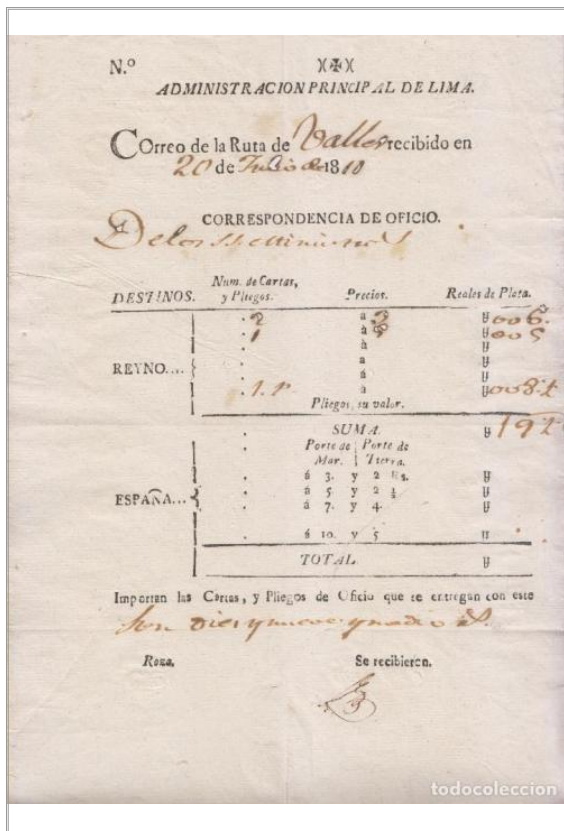 N.º )(✠)(
ADMINISTRACION PRINCIPAL DE LIMA.
COrreo de la Ruta de Valles recibido en
20 de Julio de 1810
CORRESPONDENCIA DE OFICIO.
De los S.S.
DESTINOS. Num. de Cartas, y Pliegos. Precios. Reales de Plata.
. 2 a 3 y 006.
. 1 à 5 y 005
à y
a y
REYNO.... á y
. 1. P à y 008.½
Pliegos, su valor.
. SUMA. y 19½
Porte de Mar. Porte de Tierra.
. á 3. y 2 Rs. y
. á 5. y 2 ½ y
ESPAÑA... . á 7. y 4. y
. á 10. y 5 y
TOTAL y
Importan las Cartas, y Pliegos de Oficio que se entregan con este
Son diez y nueve y medio rs.
Roza. Se recibieron.
todocoleccion